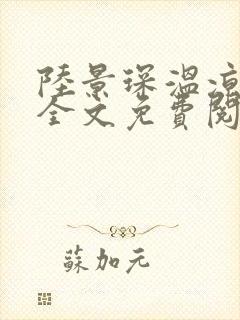 陸景琛溫涼
全文免費閱
蘇加元